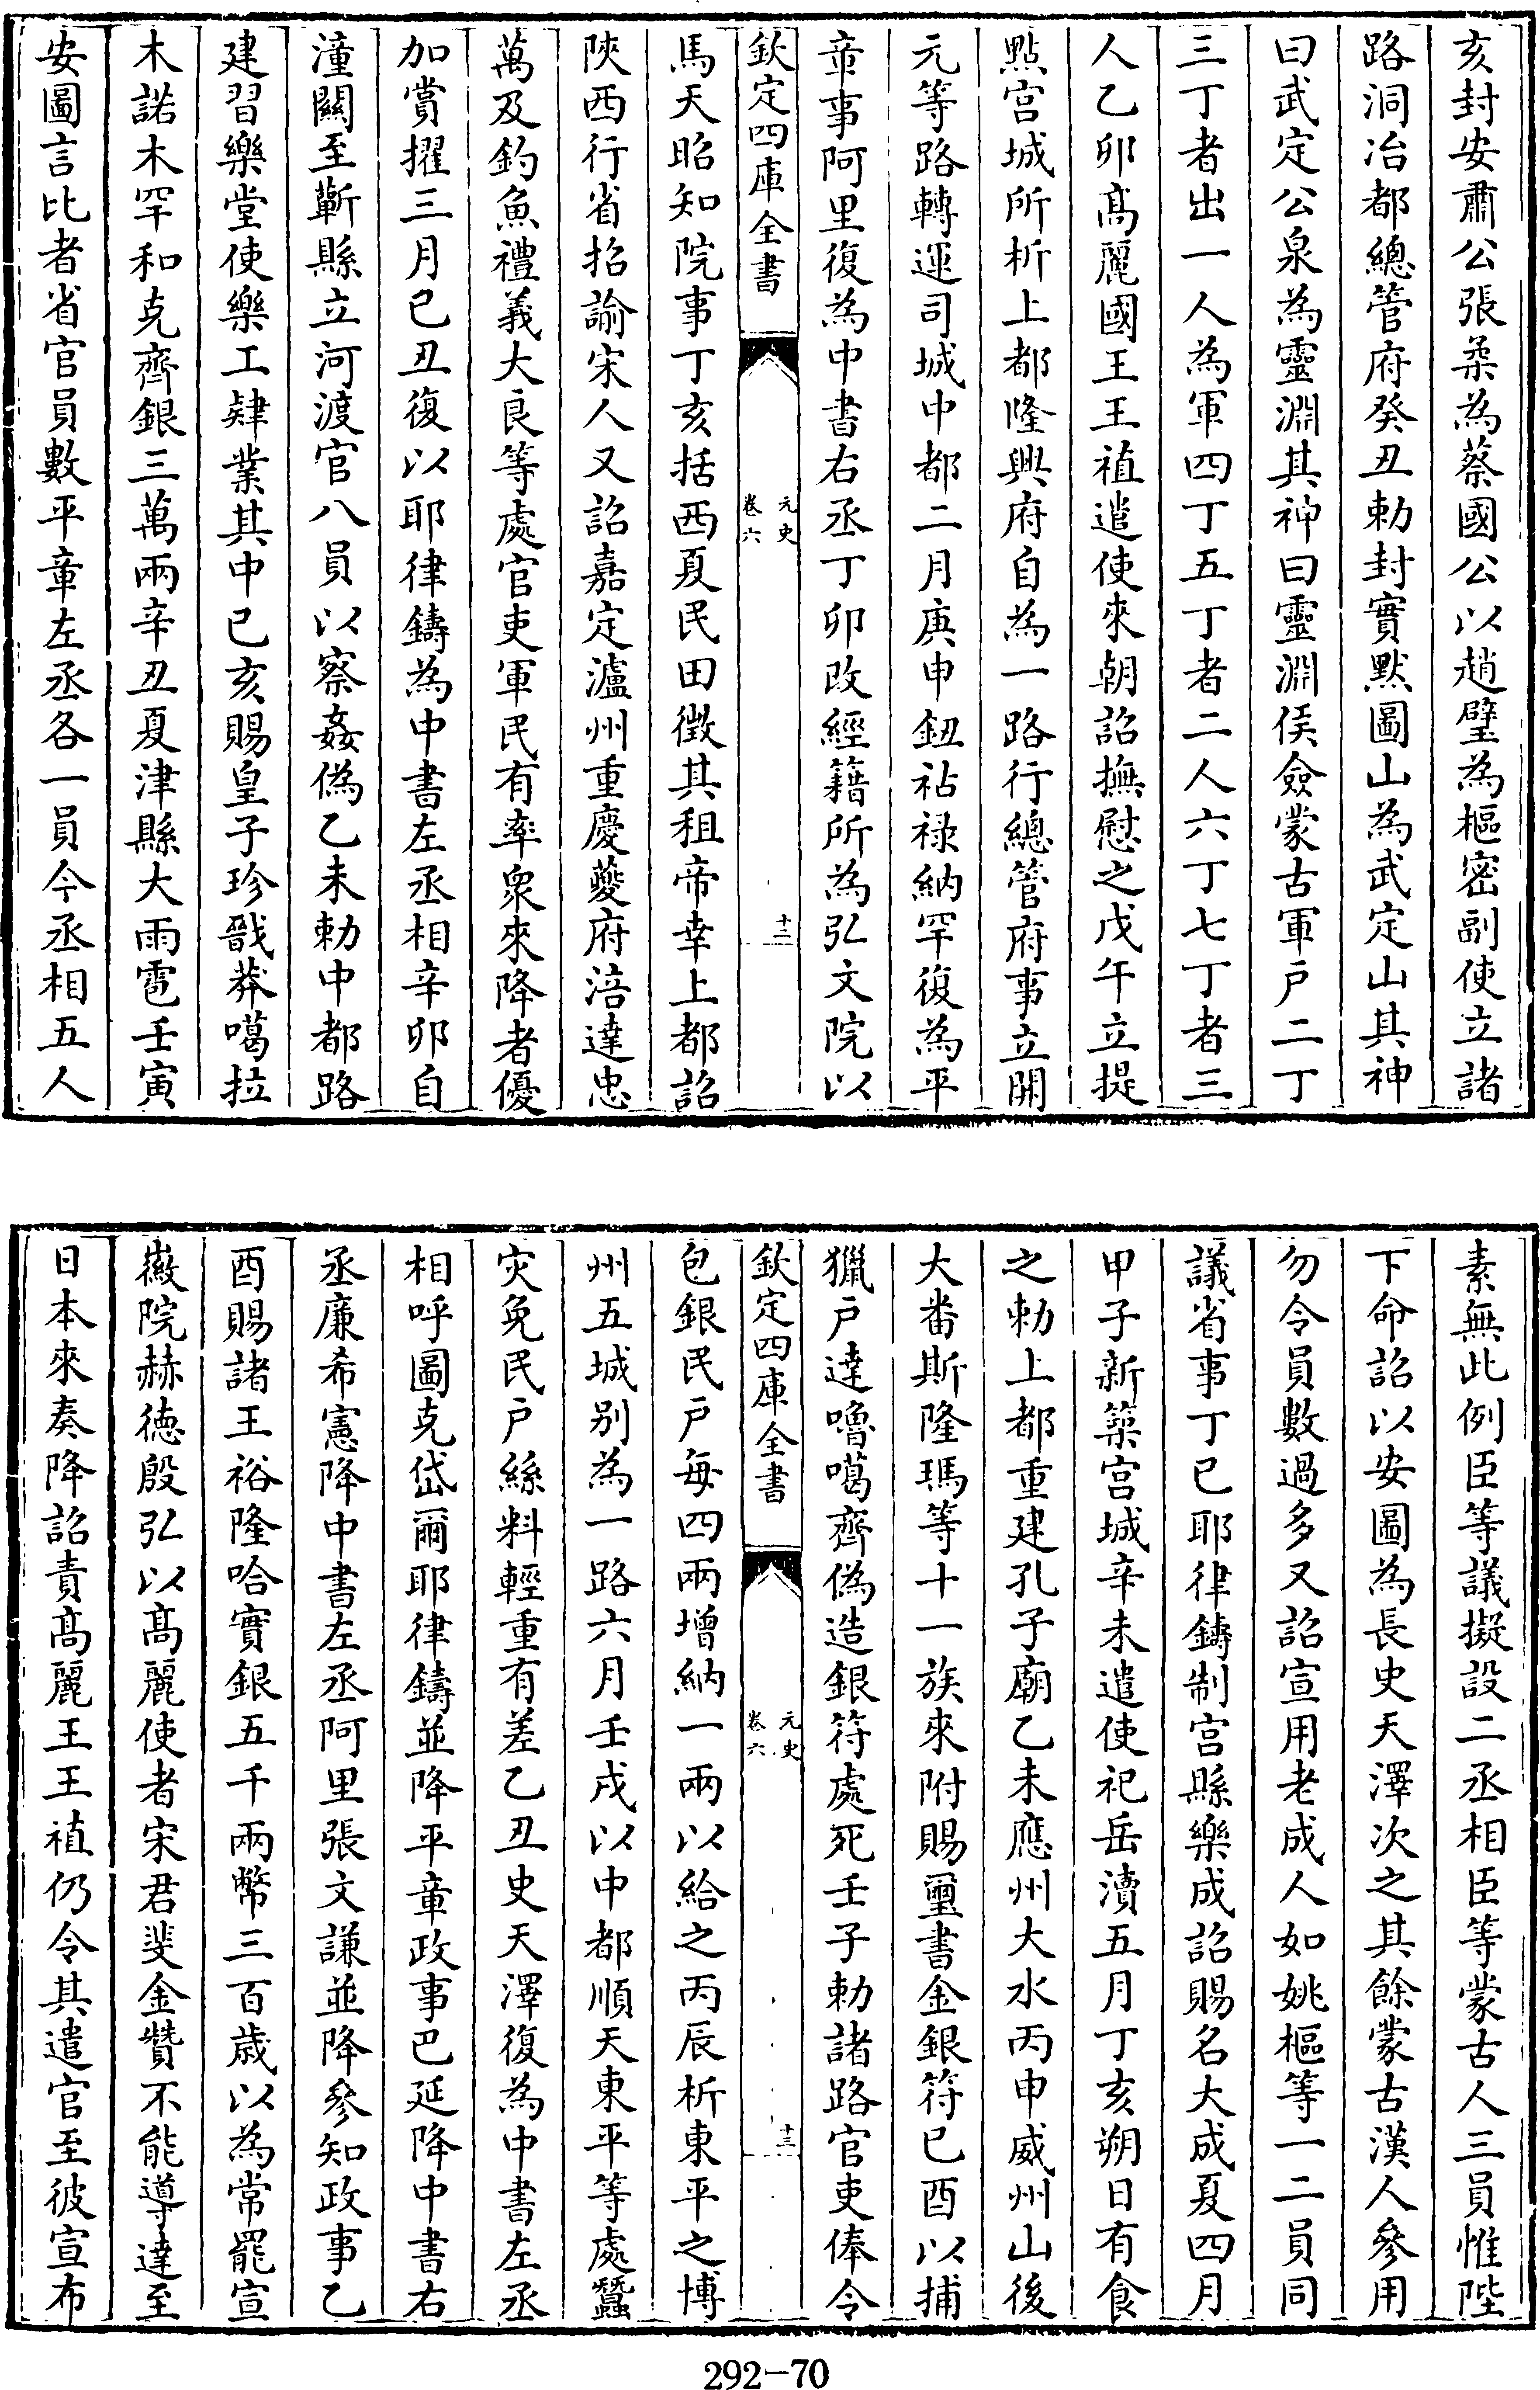 亥封安肅公張柔為蔡國公以趙璧為樞密副使立諸
路洞冶都總管府癸丑勅封實黙圖山為武定山其神
曰武定公泉為靈淵其神曰靈淵侯僉蒙古軍戶二丁
三丁者出一人為軍四丁五丁者二人六丁七丁者三
人乙卯髙麗國王王禃遣使來朝詔撫慰之戊午立提
點宫城所析上都隆興府自為一路行總管府事立開
元等路轉運司城中都二月庚申鈕祜禄納罕復為平
章事阿里復為中書右丞丁卯改經籍所為弘文院以
欽定四庫全書
元史
卷六
十二
馬天昭知院事丁亥括西夏民田徵其租帝幸上都詔
陜西行省招諭宋人又詔嘉定瀘州重慶夔府涪達忠
萬及釣魚禮義大良等處官吏軍民有率衆來降者優
加賞擢三月已丑復以耶律鑄為中書左丞相辛卯自
潼關至蘄縣立河渡官八員以察姦偽乙未勅中都路
建習樂堂使樂工肄業其中已亥賜皇子珍戩莽噶拉
木諾木罕和克齊銀三萬兩辛丑夏津縣大雨雹壬寅
安圖言比者省官員數平章左丞各一員今丞相五人
素無此例臣等議擬設二丞相臣等蒙古人三員惟陛
下命詔以安圖為長史天澤次之其餘蒙古漢人參用
勿令員數過多又詔宣用老成人如姚樞等一二員同
議省事丁巳耶律鑄制宫縣樂成詔賜名大成夏四月
甲子新築宫城辛未遣使祀岳瀆五月丁亥朔日有食
之勅上都重建孔子廟乙未應州大水丙申威州山後
大番斯隆瑪等十一族來附賜璽書金銀符已酉以捕
獵戶達嚕噶齊偽造銀符處死壬子勅諸路官吏俸令
欽定四庫全書
元史
卷六
十三
包銀民戶每四兩增納一兩以給之丙辰析東平之博
州五城别為一路六月壬戌以中都順天東平等處蠶
灾免民戶絲料輕重有差乙丑史天澤復為中書左丞
相呼圖克岱爾耶律鑄並降平章政事巴延降中書右
丞廉希憲降中書左丞阿里張文謙並降參知政事乙
酉賜諸王裕隆哈實銀五千兩幣三百歳以為常罷宣
徽院赫德殷弘以髙麗使者宋君斐金贊不能導達至
日本來奏降詔責髙麗王王禃仍令其遣官至彼宣布
292-70